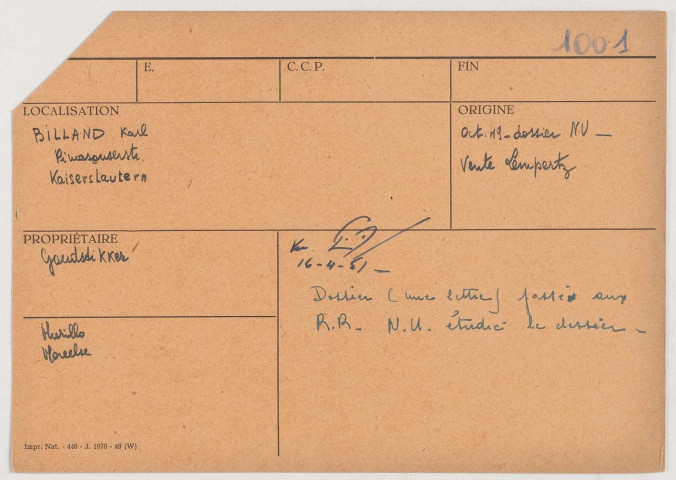 1001
E.
C.C.P.
FIN
LOCALISATION
BILLAND Karl
Pirmasenserstr.
Kaiserslautern
ORIGINE
Oct. 49 - dossier NU -
Vente Lempertz
PROPRIÉTAIRE
Goudstikker
16-4-51 -
Dossier (une lettre) passé aux
R.R. N.U. étudie le dossier -
Murillo
Moreelse
Impr. Nat. - 446 - J. 1070 - 49 (W)